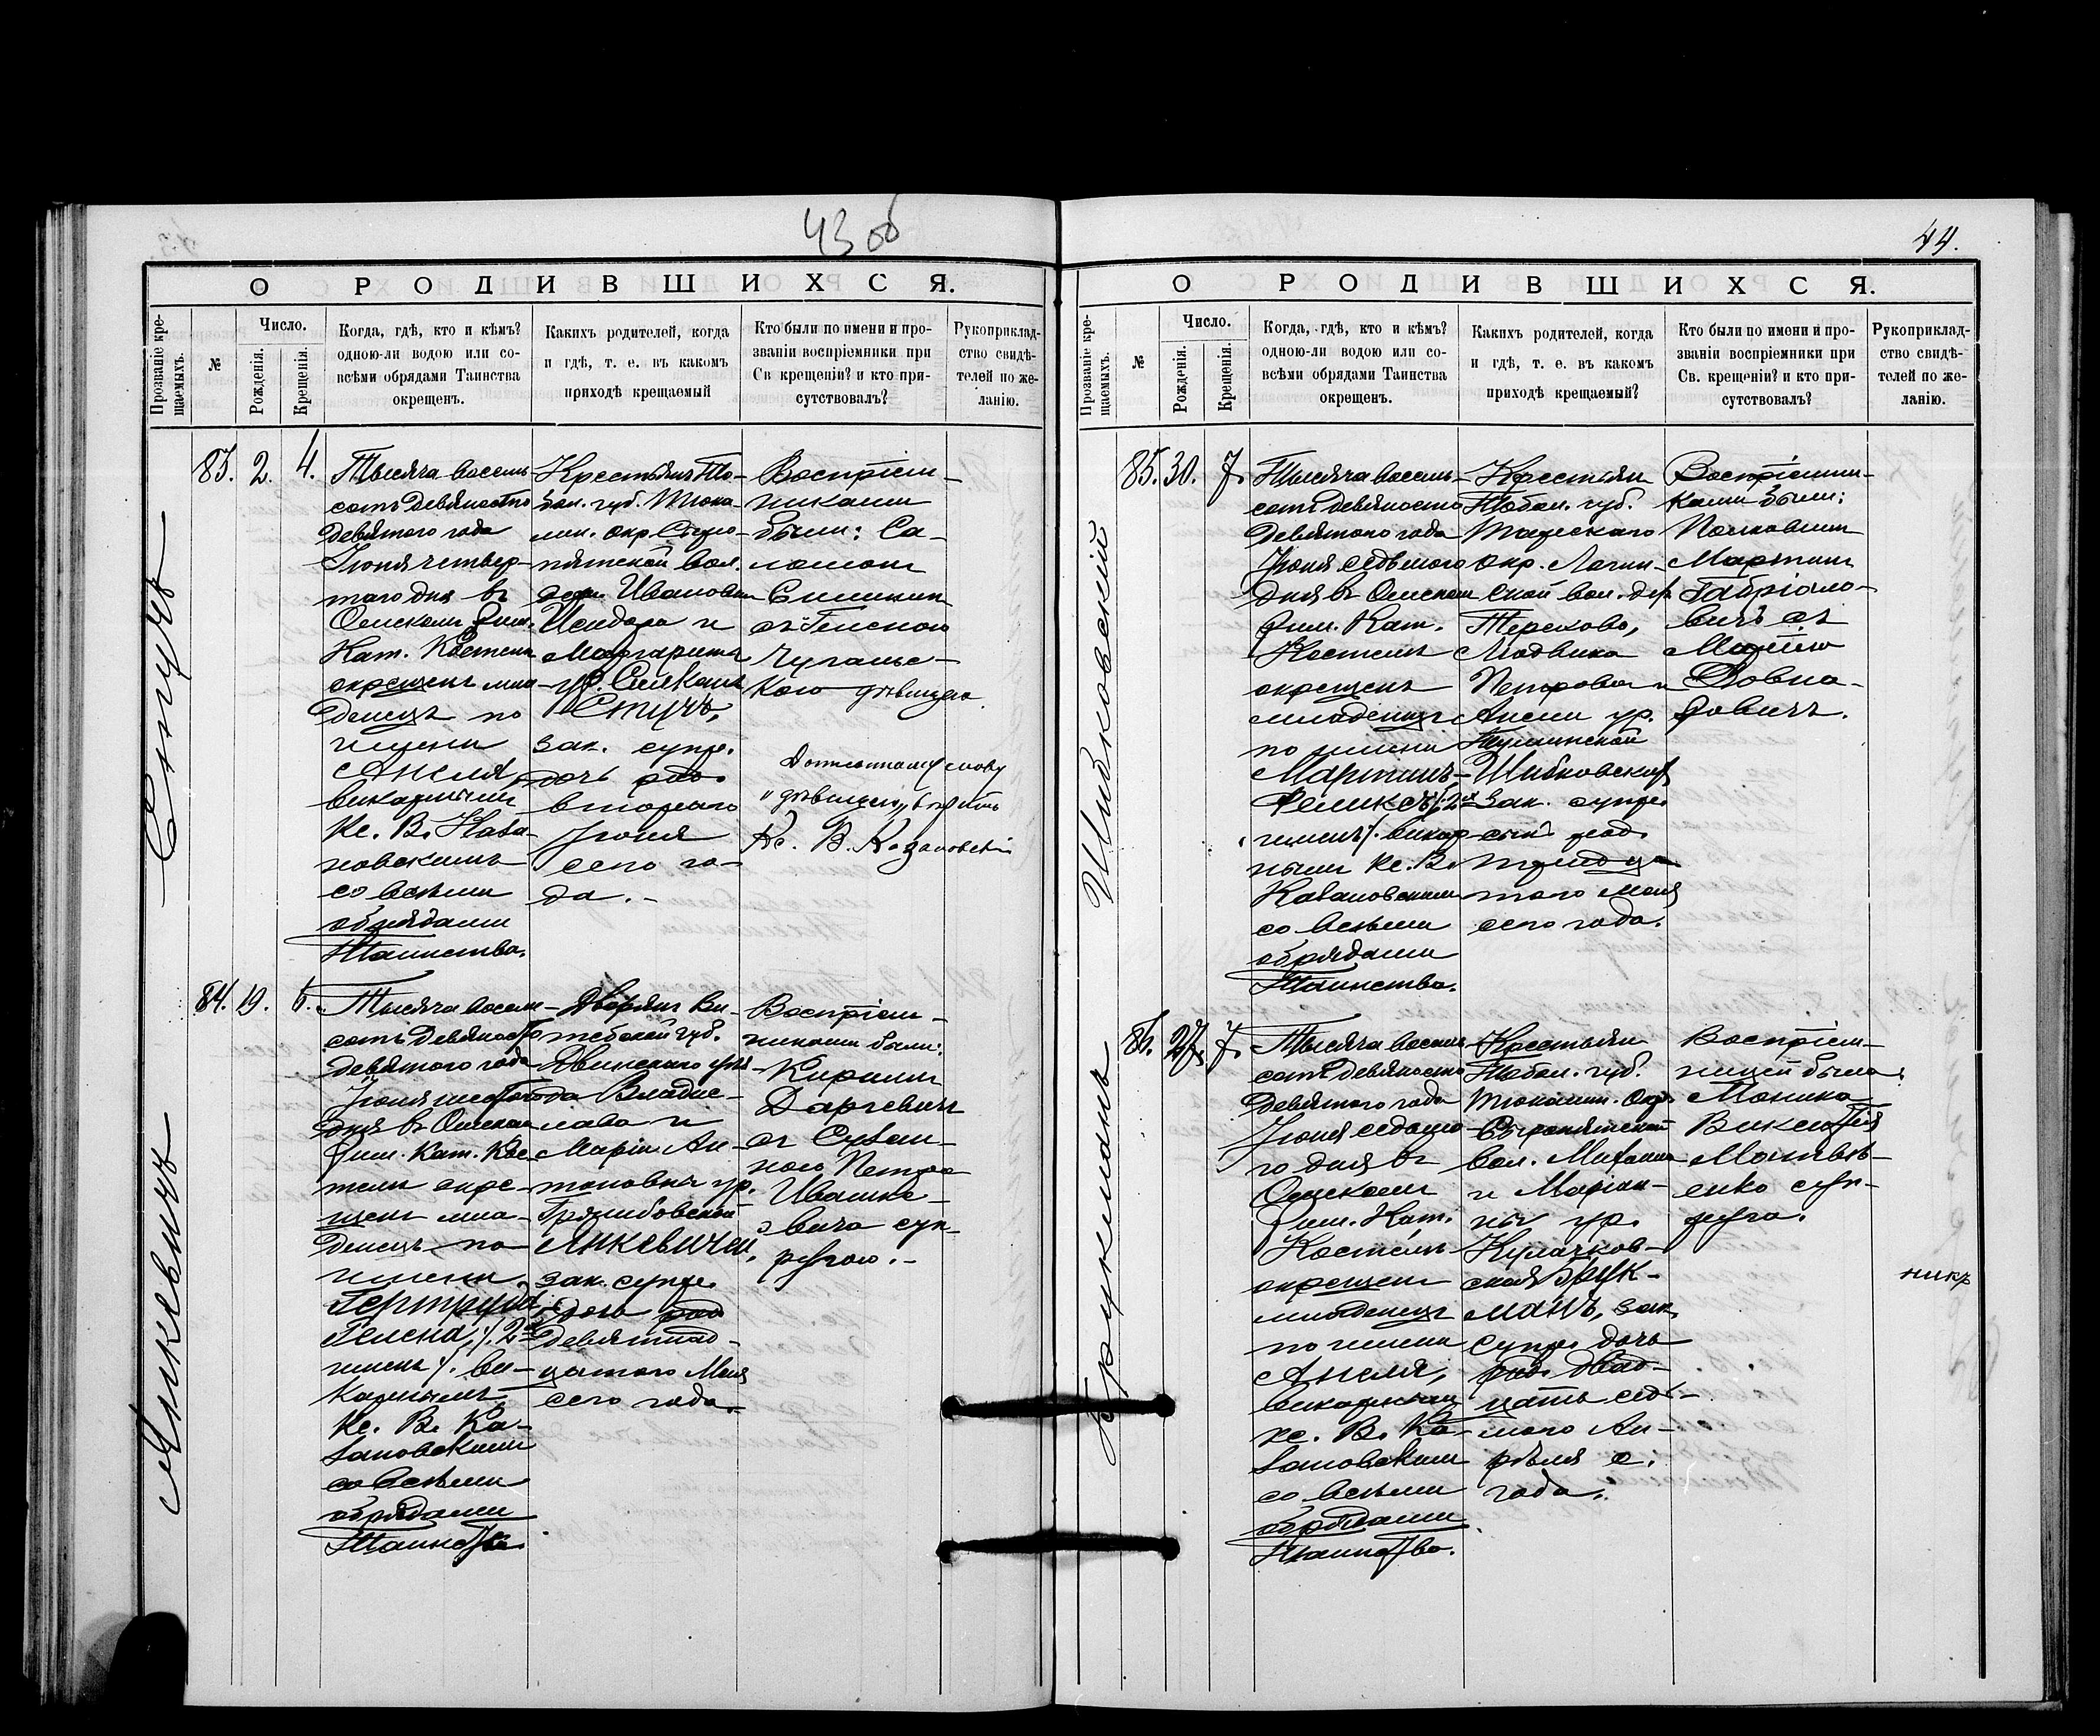 43 об
О РОДИВШИХСЯ.
Прозваніе кре-
щаемыхъ.
№
Число.
Рожденія.
Крещенія.
Когда, гдѣ, кто и кѣмъ?
одною-ли водою или со-
всѣми обрядами Таинства
окрещенъ.
Какихъ родителей, когда
и гдѣ, т. е. въ какомъ
приходѣ крещаемый
Кто были по имени и про-
званіи воспріемники при
Св крещеніи? и кто при-
сутствовалъ?
Рукоприклад-
ство свидѣ-
телей по же-
ланію.
83. 2. 4.
Тысяча восемь
сотъ девяносто
девятого года
Іюня четвер-
таго дня въ
Омскомъ Рим.
Кат. Костелѣ
окрещенъ мла-
денецъ по
имени
Анеля,
викарнымъ
Кс. В. Каза-
новскимъ
со всѣми
обрядами
Таинства.
Крестьянъ То-
бол. губ. Тюка-
лин. окр.
вол.
дер. Ивановки
Исидора и
Маргариты
ур.
Спичъ,
зак. супр.
дочь род.
второго
Іюня
сего го-
да.-
Воспріем-
никами
были: Са-
ломон
съ Геленою
кою дѣвицею.
дѣвицею
Кс. В. Казановскі
84. 19. 6.
Тысяча восемь
сотъ девяносто
девятого года
Іюня шестого
дня въ Омском
Рим. Кат. Кос-
телѣ окре-
щенъ мла-
денецъ по
имени
Гертруда
Гелена, /2хъ
именъ/ ви-
карнымъ
Кс. В. Ка-
зановскимъ
со всѣми
обрядами
Таинства.
Дворянъ Ви-
тебской губ.
Двинскаго уѣз-
да Владис-
лава и
Маріи Ан-
тоновны ур.
Гржибовской
Янкевичей,
зак. супр.
дочь род.
девятнад-
цатого Мая
сего года.-
Воспріем-
никами были:
Кириллъ
Даргевичъ
съ Сузан-
ною Петра
Ивашке-
вича суп-
ругою.-
Спичъ
Янкевичъ
44.
О РОДИВШИХСЯ.
Прозваніе кре-
щаемыхъ.
№
Число.
Рожденія.
Крещенія.
Когда, гдѣ, кто и кѣмъ?
одною-ли водою или со-
всѣми обрядами Таинства
окрещенъ.
Какихъ родителей, когда
и гдѣ, т. е. въ какомъ
приходѣ крещаемый?
Кто были по имени и про-
званіи воспріемники при
Св. крещеніи? и кто при-
сутствовалъ?
Рукоприклад-
ство свидѣ-
телей по же-
ланію.
85. 30. 7.
Тысяча восемь
сотъ девяносто
девятого года
Іюня седьмого
дня въ Омском
Рим. Кат.
Костелѣ
окрещенъ
младенецъ
по имени
Мартинъ-
Феликсъ /2хъ
именъ/ викар
нымъ Кс. В.
Казановским
со всѣми
обрядами
Таинства.
Крестьян
Тобол. губ.
Тарскаго
окр. Логин-
ской вол. дер.
Терехово,
Людвика
Петрова и
Анны ур.
Шибковских
зак. супр.
сынъ род.
тридца-
того Мая
сего года.
Воспріемни-
ками были:
Полковникъ
Мартинъ
Габріало-
вичъ съ
Маріею
Довна-
ровичъ.
86. 27. 7.
Тысяча восемь
сотъ девяносто
девятого года
Іюня седьмо-
го дня въ
Омскомъ
Рим. Кат.
Костелѣ
окрещенъ
младенецъ
по имени
Анеля,
викарнымъ
Кс. В. Ка-
зановским
со всѣми
обрядами
Таинства.
Крестьян
Тобол. губ.
Тюкалин. Окр.
вол. Михаила
и Маріан-
ны ур.
Кулачков-
ская Брук-
манъ, зак.
супр. дочь
род. двад-
цать седь-
мого Ап-
рѣля с.
года.
Воспріем-
ницей была
Моника
Викентія
Матвѣ-
енко суп-
руга.
Шибковскій
Брукманъ